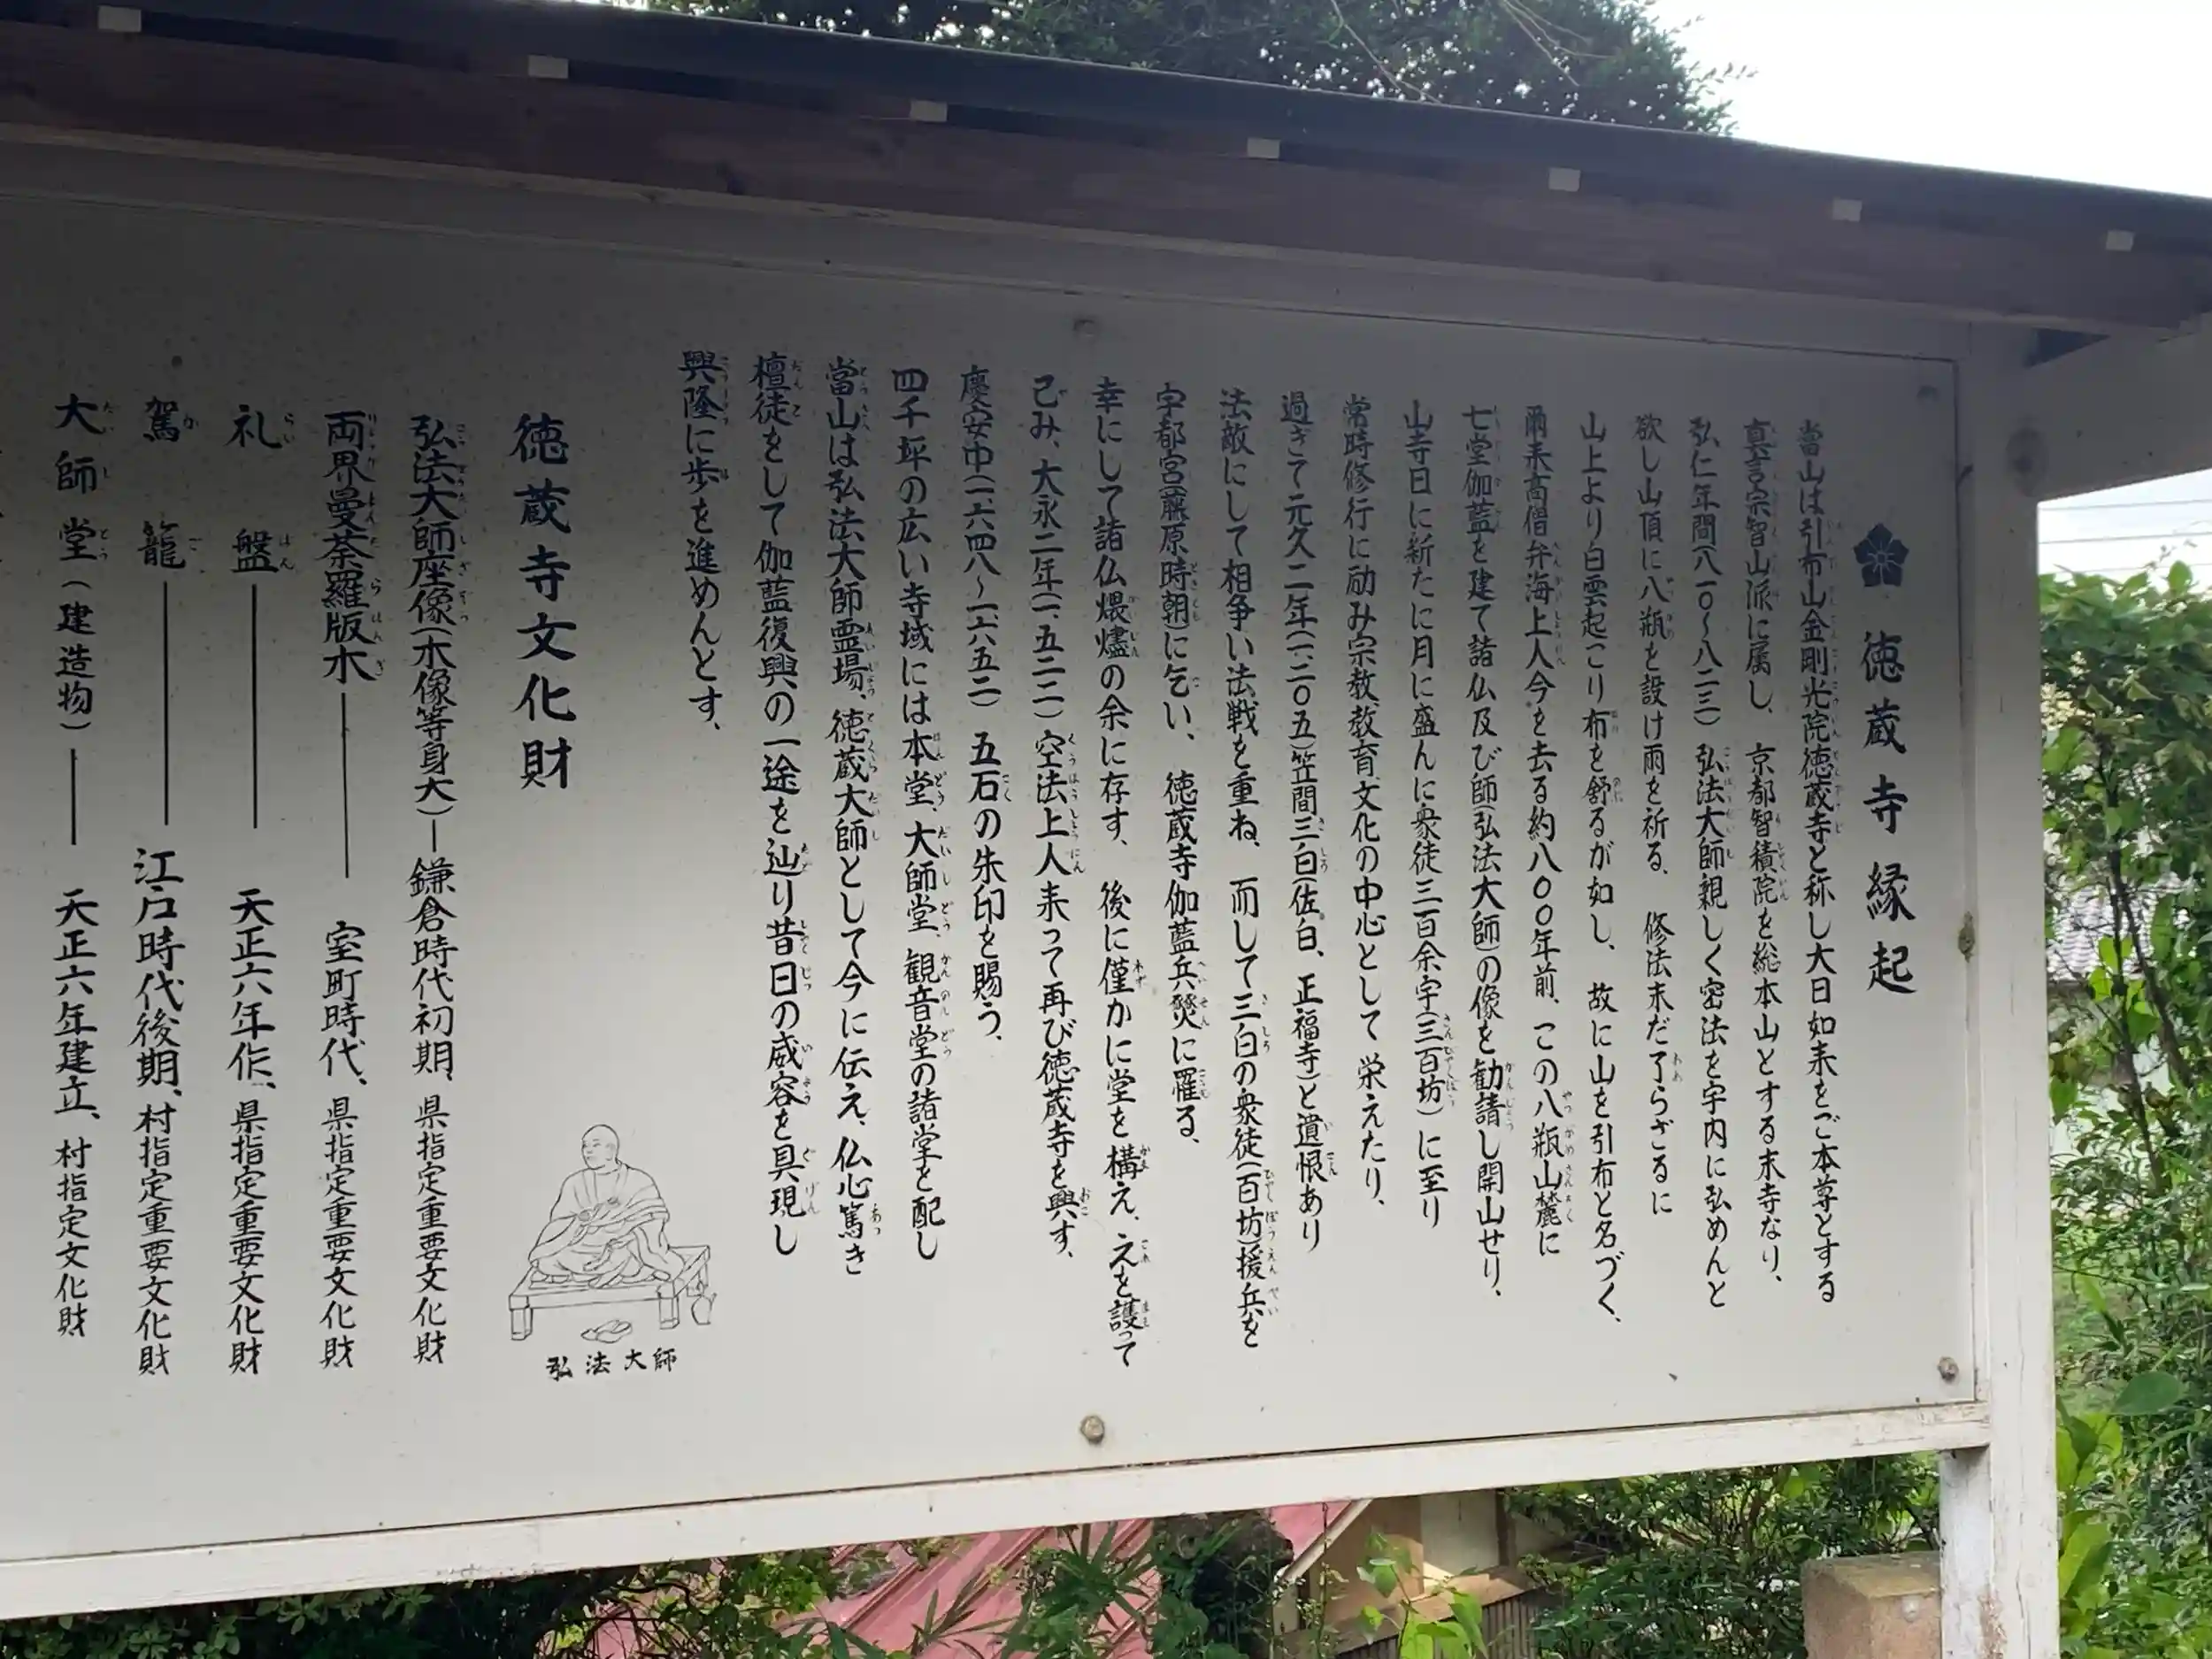 徳蔵寺縁起
當山は引布山金剛光院徳蔵寺と称し大日如来をご本尊とする
真言宗智山派に属し、京都智積院を総本山とする末寺なり、
弘仁年間(八一〇〜八二三)弘法大師親しく密法を宇内に弘めんと
欲し山頂に八瓶を設け雨を祈る、修法未だ了らざるに
山上より白雲起こり布を舒るが如し、故に山を引布と名づく、
爾来高僧弁海上人今を去る約八〇〇年前、この八瓶山麓に
七堂伽藍を建て諸仏及び師(弘法大師)の像を勧請し開山せり、
山寺日に新たに月に盛んに衆徒三百余宇(三百坊)に至り
常時修行に励み宗教教育文化の中心として栄えたり、
過ぎて元久二年(一二〇五)笠間三白(佐白、正福寺)と遺恨あり
法敵にして相争い法戦を重ね、而して三白の衆徒(百坊)援兵を
宇都宮(藤原時朝)に乞い、徳蔵寺伽藍兵燹に罹る、
幸にして諸仏煨燼の余に存す、後に僅かに堂を構え、之を護って
己み、大永二年(一、五二二)空法上人来って再び徳蔵寺を興す、
慶安中(一六四八〜一六五二)五石の朱印を賜う、
四千坪の広い寺域には本堂、大師堂、観音堂の諸堂を配し
當山は弘法大師霊場、徳蔵大師として今に伝え、仏心篤き
檀徒をして伽藍復興の一途を辿り昔日の威容を具現し
興隆に歩を進めんとす、
徳蔵寺文化財
弘法大師
弘法大師座像(木像等身大)―鎌倉時代初期、県指定重要文化財
両界曼荼羅版木―室町時代、県指定重要文化財
礼盤―天正六年作、県指定重要文化財
駕籠―江戸時代後期、村指定重要文化財
大師堂(建造物)―天正六年建立、村指定文化財